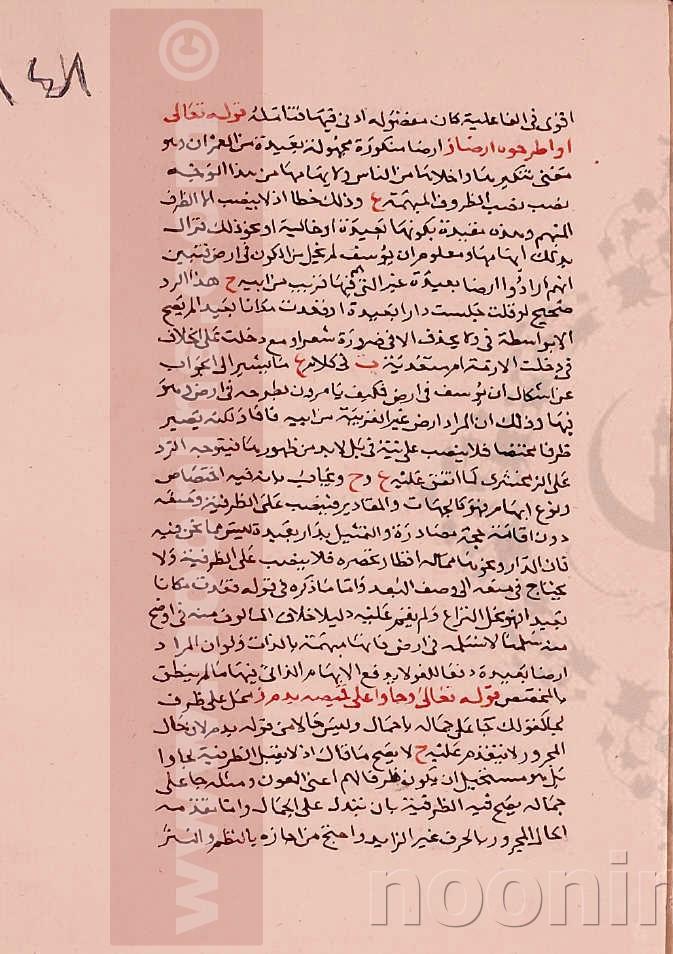 ١٤٨
اقوى فى الفاعلية كان مفعوله ادنى فيها فتامله قوله تعالى
او اطرحوه ارضا ز ارضا منكورة مجهولة بعيدة من العمران وهو
معنى تنكيرها واخلائها من الناس ولابهامها من هذا الوجه
نصب نصب الظروف المبهمة ع وذلك خطا اذ لا ينصب الا الظرف
المبهم وهذه مقيدة بكونها بعيدة او خالية او نحو ذلك فزال
بذلك ابهامها ومعلوم ان يوسف لم يخل من الكون فى ارض فتبين
انهم ارادوا ارضا بعيدة غير التى فيها قريب من ابيه ح هذا الرد
صحيح لو قلت جلست دارا بعيدة او قعدت مكانا بعيد لم يصح
الا بواسطة فى ولا يحذف الا فى ضرورة شعر او مع دخلت على الخلاف
فى دخلت الازمة ام متعدية ب فى كلام ع ما يشير الى الجواب
عن اشكال ان يوسف فى ارض فكيف يامرون بطرحه فى ارض وهو
فيها وذلك ان المراد ارض غير القريبة من ابيه
ظرفا مختصا فلا ينصب على نية فى بل لا بد من ظهورها فيتوجه الرد
على الزمخشرى كما اتفق عليه ع وح ويجاب بانه فيه اختصاص
ونوع ابهام فهو كالجهات والمقادير فينصب على الظرفية ومنعه
دون اقامة حجة مصادرة والتمثيل بدار بعيدة ليس مما نحن فيه
فان الدار ونحوها مما له اقطار تحصره فلا ينصب على الظرفية ولا
يحتاج فى منعه الى وصف البعد واما ما ذكره فى قوله قعدت مكانا
بعيدا فهو محل النزاع ولم يقم عليه دليلا خلاف المالوف منه فى اوضح
منه سلمنا لا نسلمه فى ارض فانها مبهمة بالذات ولو ان المراد
ارضا بعيدة دفعا للغو لا يدفع الابهام الذاتى فيها ما لم ينطق
بالمخصص قوله تعالى وجاوا على قميصه بدم ز محل على ظرف
كما تقول جا على جماله باحمال وليس حالا من قوله بدم لان حال
المجرور لا يتقدم عليه ح لا يصح ما قال اذ لا يقبل الظرفية لجاوا
بل هو مستحيل ان يكون ظرفا لهم اعنى الفوق ومثله جا على
جماله يصح فيه الظرفية بان تبدل على الجمال واما تقدمه
الحال المجرور بالحرف غير الزايد واحتج من اجازه بالنظم والنثر
www.
©
noonin